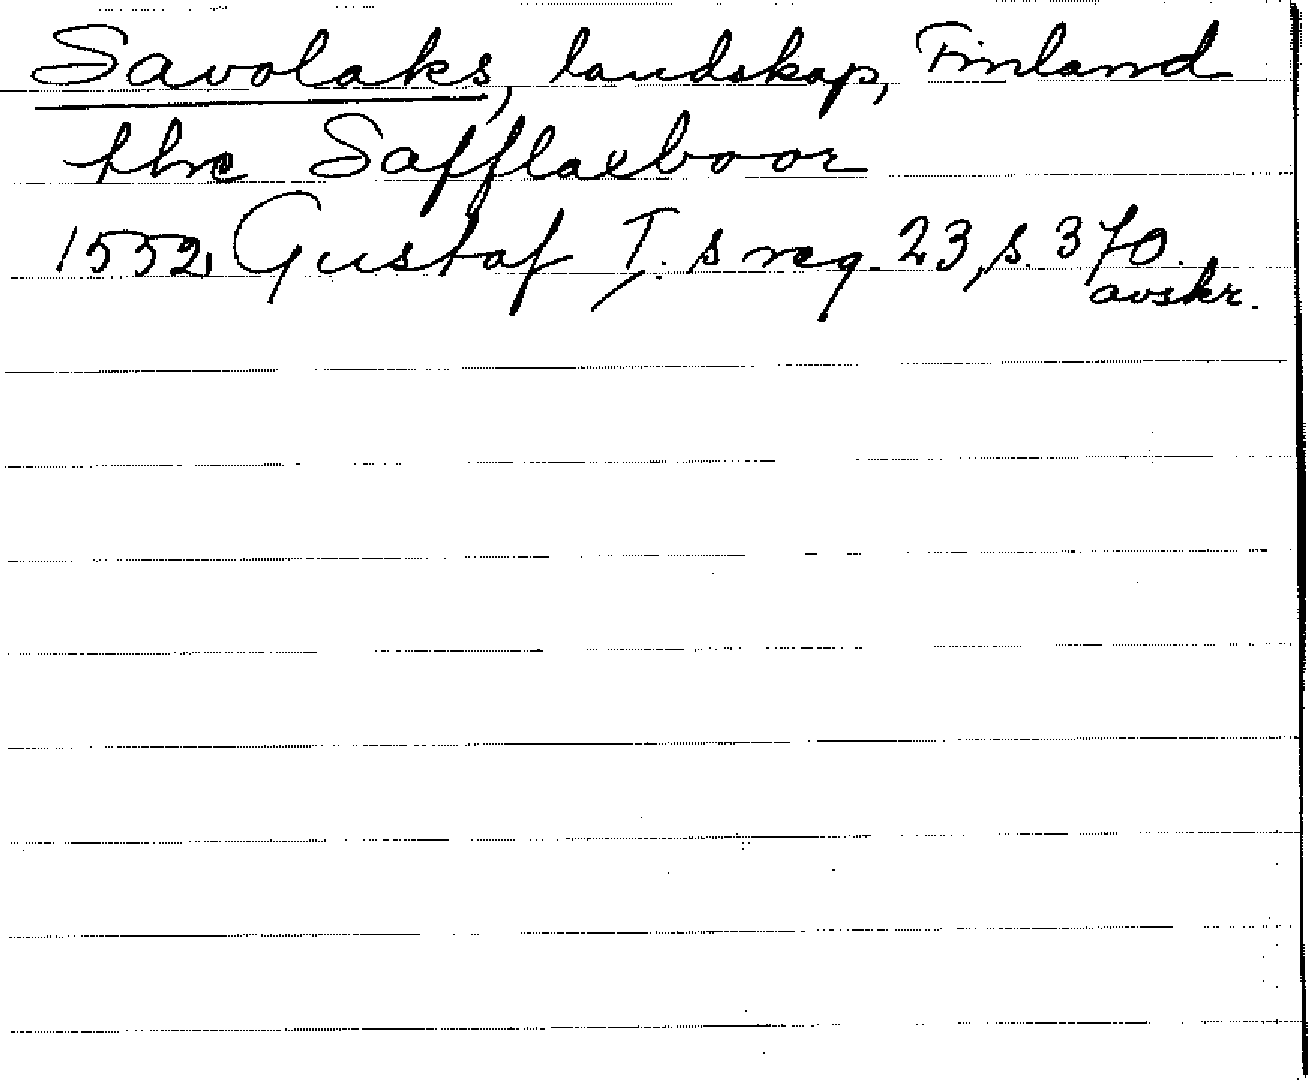 Savolaks, landskap, Finland
the Safflaeboor
1552, Gustaf I.s reg. 23, s. 370.
avskr.